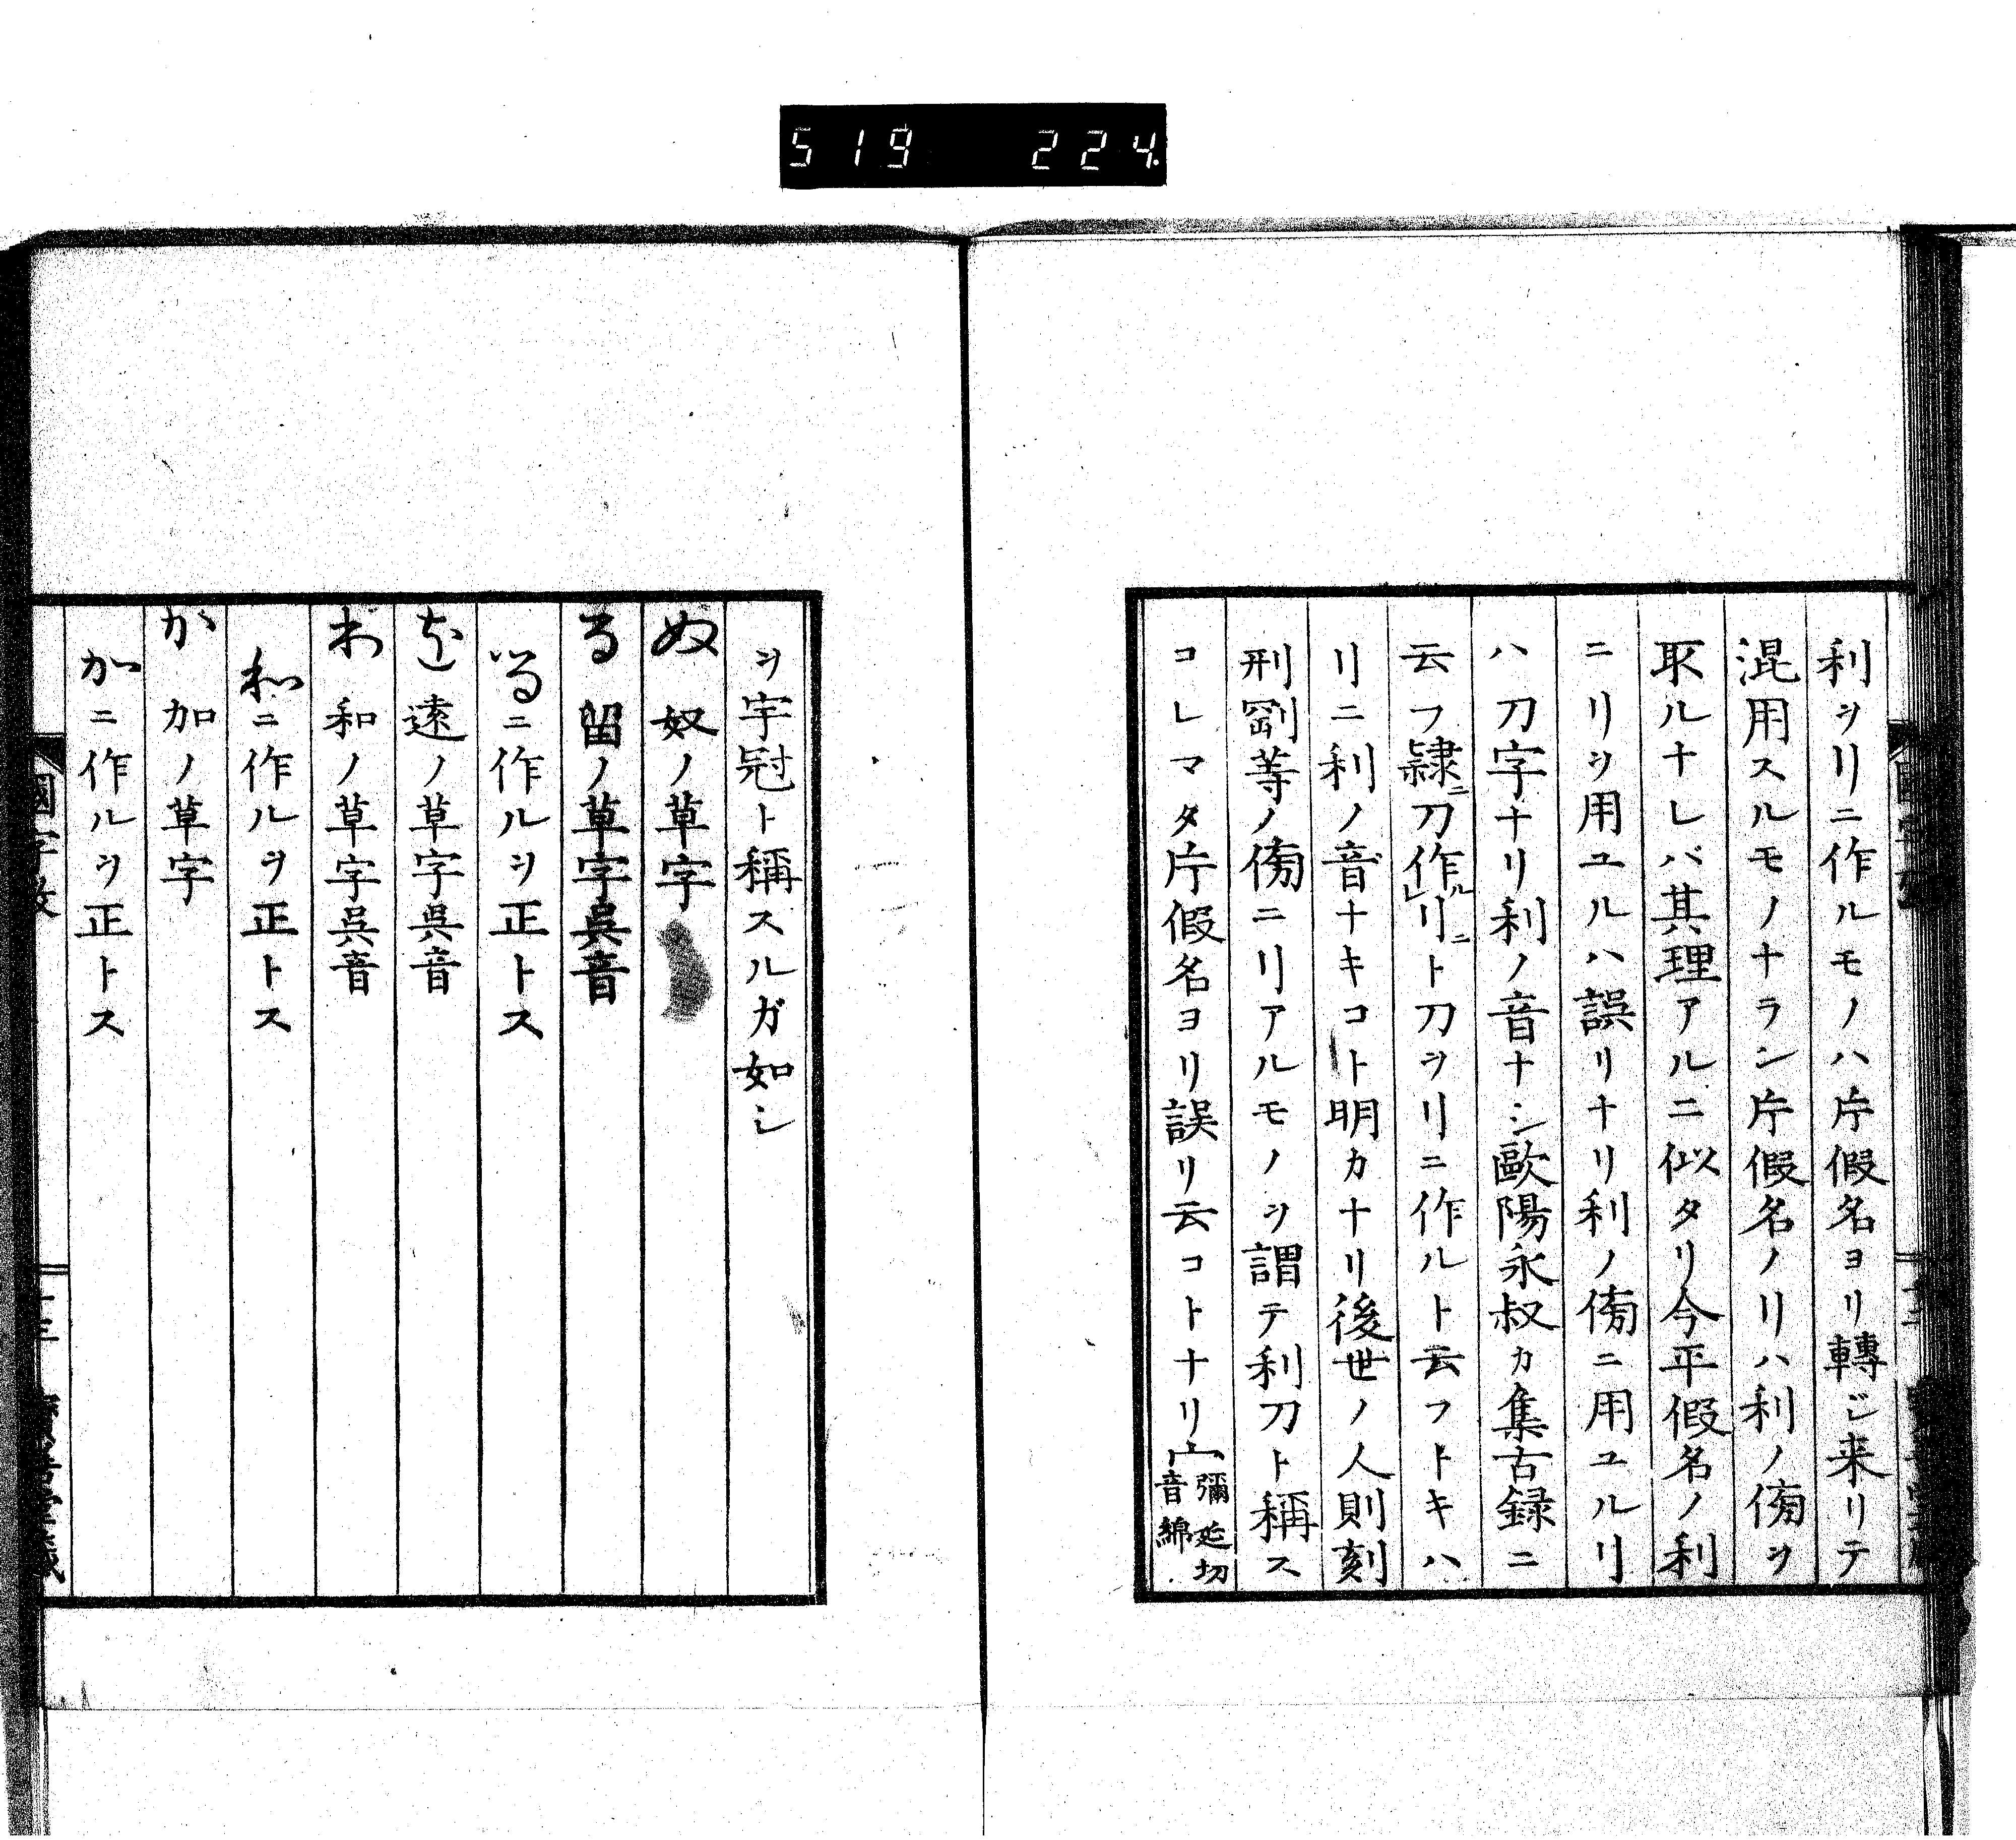 519 224
利ヲリニ作ルモノハ片假名ヨリ轉ジ来リテ
混用スルモノナラン片假名ノリハ利ノ傍ヲ
取ルナレバ其理アルニ似タリ今平假名ノ利
ニリヲ用ユルハ誤リナリ利ノ傍ニ用ユルリ
ハ刀字ナリ利ノ音ナシ歐陽永叔カ集古録ニ
云フ隷ニ刀作ルレリニト刀ヲリニ作ルト云フトキハ
リニ利ノ音ナキコト明カナリ後世ノ人則刻
刑劉等ノ傍ニリアルモノヲ謂テ利刀ト稱ス
コレマタ片假名ヨリ誤リ云コトナリ宀彌延切音綿
ヲ宇冠ト稱スルガ如シ
ぬ 奴ノ草字
る 留ノ草字呉音
るニ作ルヲ正トス
を 遠ノ草字呉音
わ 和ノ草字呉音
わニ作ルヲ正トス
か 加ノ草字
かニ作ルヲ正トス
國字攷
十三